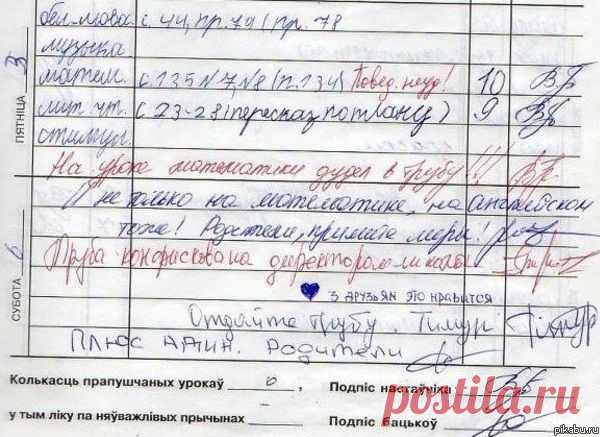 бел. мова. с. 44, пр. 79 (пр. 78
музыка.
матем. с. 135 №7, №8 (п. 134) Повед. неуд! 10
ПЯТНІЦА 5
лит. чт. с 23-28 (пересказ по плану) 9
На уроке математики дудел в трубу!!!
И не только на математике, на английском
тоже! Родители, примите меры!
СУБОТА 6
Труба конфискована директором школы
3 друзьям понравится
Отдайте трубу. Тимур Тімур
Плюс адин. Родители
Колькасць прапушчаных урокаў 0 Подпіс настаўніка
у тым ліку па няўважлівых прычынах Подпіс бацькоў
postila.ru
pikabu.ru